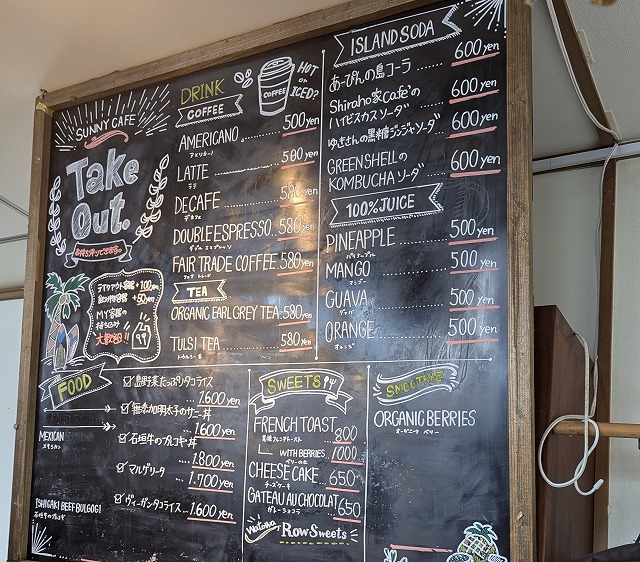 SUNNY CAFE
Take
Out.
お持ち帰りできます。
テイクアウト容器 +100yen
飲み物容器 +50yen
MY容器の
持ち込み
大歓迎!!
DRINK
COFFEE
COFFEE
HOT
or
ICED?
AMERICANO 500yen
アメリカーノ
LATTE 580yen
ラテ
DECAFE 580yen
デカフェ
DOUBLE ESPRESSO 580yen
ダブルエスプレッソ
FAIR TRADE COFFEE 580yen
フェアトレード
TEA
ORGANIC EARL GREY TEA 580yen
TULSI TEA 580yen
トゥルシー茶
ISLAND SODA
あーぴんの島コーラ 600yen
Shiraho家Cafe'の
ハイビスカスソーダ 600yen
ゆきさんの黒糖ジンジャソーダ 600yen
GREEN SHELLの
KOMBUCHAソーダ 600yen
100%JUICE
PINEAPPLE 500yen
パイナップル
MANGO 500yen
マンゴー
GUAVA 500yen
グァバ
ORANGE 500yen
オレンジ
FOOD
MEXICAN
メキシカン
ISHIGAKI BEEF BULGOGI
石垣牛のプルコギ
島野菜たっぷりタコライス
1.600yen
無添加明太子のサニー丼
1.600yen
石垣牛のプルコギ丼
1.800yen
マルゲリータ
1.700yen
ヴィーガンタコライス 1.600yen
SWEETS
FRENCH TOAST 800
黒糖フレンチトースト
WITH BERRIES 1000
CHEESE CAKE 650
チーズケーキ
GATEAU AU CHOCOLAT 650
ガトーショコラ
Row Sweets
SMOOTHIE
ORGANIC BERRIES
オーガニック ベリー